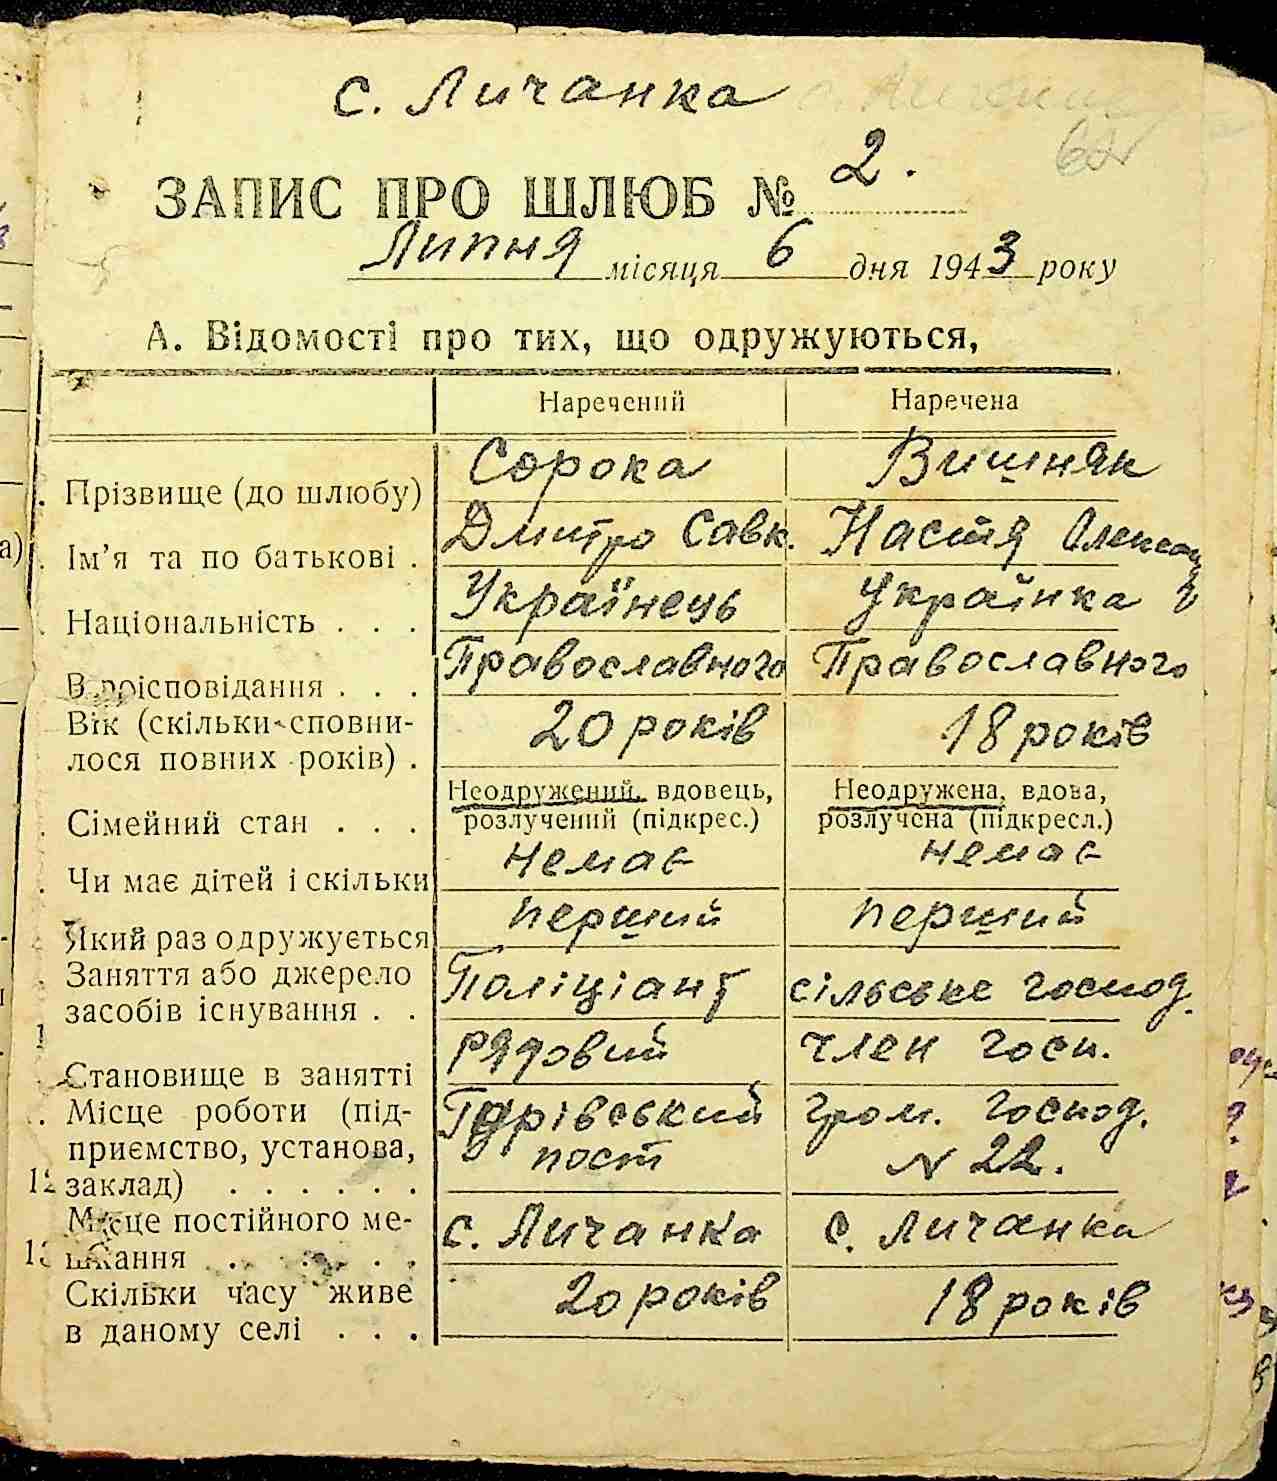 с. Личанка
62
ЗАПИС ПРО ШЛЮБ № 2.
Липня місяця 6 дня 1943 року
А. Відомості про тих, що одружуються,
Наречений Наречена
Прізвище (до шлюбу) Сорока Вишняк
Ім'я та по батькові . Дмитро Савк. Настя Олександ
Національність . . . Українець Українка
Віроісповідання . . . Православного Православного
Вік (скільки сповни-
лося повних років) . 20 років 18 років
Неодружений, вдовець, Неодружена, вдова,
Сімейний стан . . . розлучений (підкрес.) розлучена (підкресл.)
Чи має дітей і скільки немає немає
Який раз одружується перший перший
Заняття або джерело
засобів існування . . Поліціант сільське господ.
Становище в занятті рядовий член госп.
Місце роботи (під-
приємство, установа, пост гром. господ.
12 заклад) . . . . . . N 22.
Місце постійного ме-
13 шкання . . . . . с. Личанка с. Личанка
Скільки часу живе
в даному селі . . . 20 років 18 років